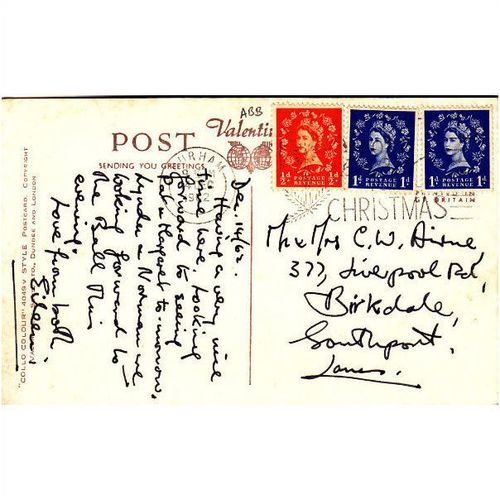 ABB
POST
Valentin
SENDING YOU GREETINGS
DURHAM
½d POSTAGE REVENUE ½d
1d POSTAGE REVENUE 1d
1d POSTAGE REVENUE 1d
BRITAIN
CHRISTMAS
Dec. 14/62.
Having a very nice
time here looking
forward to seeing
Pat & Margaret to-morrow.
Lydia & Norman we
looking forward to
the Ball this
evening.
Love from both
Eileen.
Mr & Mrs C. W. Airne
377, Liverpool Rd,
Birkdale,
Southport,
Lancs.
"COLLO COLOUR" 4049V STYLE POSTCARD, COPYRIGHT
DUNDEE AND LONDON